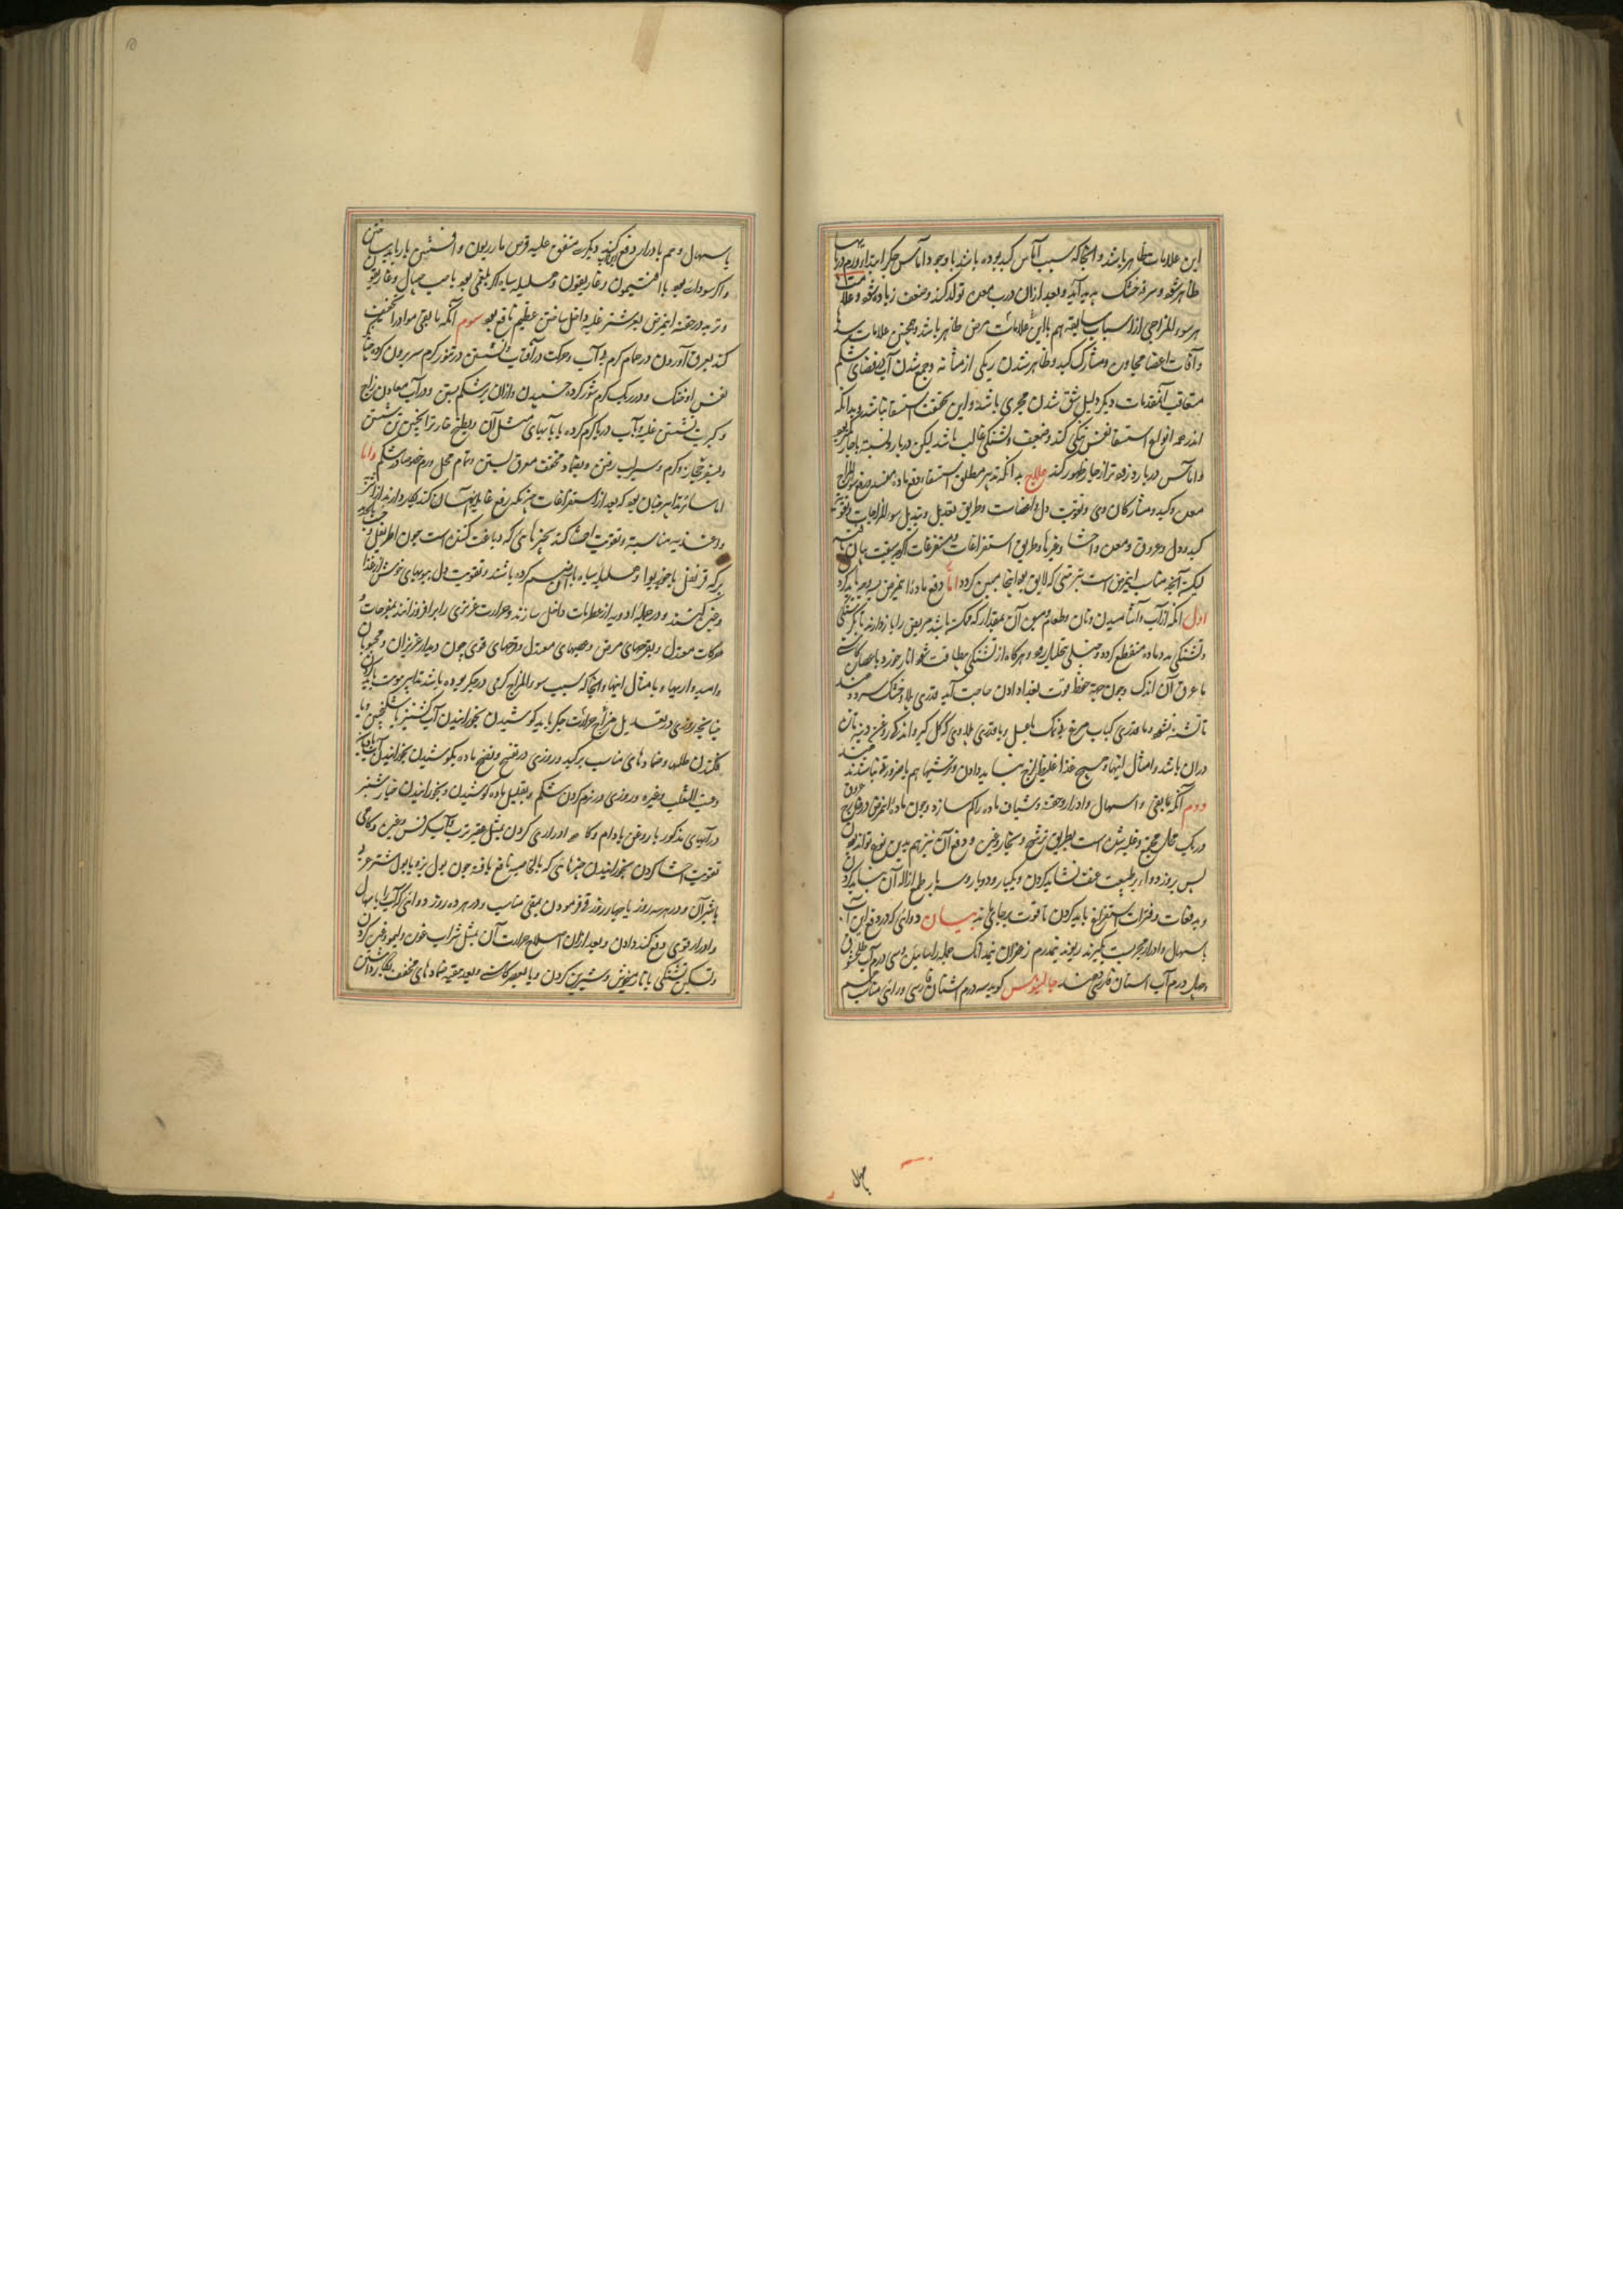 این علامات ظاهر باشد و آنجا که سبب آماس کبد بوده باشد با وجود آماس جگر ابتدا ورم در پایها
ظاهر شود و سرفه خشک پدید آید و بعد از آن درب معده تولد کند و ضعف زیاده شود و علامات
هر سوء المزاجی از اسباب سابقه هم با این علامات مرض ظاهر باشد و همچنین علامات سده
و آفات اعضا مجاور و مشارک کبد و ظاهر شدن ریگی از مثانه و جمع شدن آب در فضای شکم
متعاقب آن مقدمات دیگر دلیل شق شدن مجری باشد و این بحقیقت استسقا نباشد و بدانکه
اندر همه انواع استسقا نفس تنگی کند و ضعیف و تشنگی غالب باشد لیکن در بارد نسبت با حار کمتر بود
و اماس در بارد زودتر از حار ظهور کند علاج بدانکه تدبیر مطلق استسقا دفع ماده مفسد و رفع سوء المزاج
معده و کبد و مشارکان وی و تقویت دل و اعضاست و طریق تعدیل و تبدیل سوء المزاجات و تقویت
کبد و دل و عروق و معده و احشا و غیرها و طریق استفراغات و مستفرغات اگرچه سبقت بیان یافته
لیکن آنچه مناسب این مرض است بترتیبی که لایق بود اینجا مبین گردد اما دفع ماده این مرض بسه وجه باید کرد
اول آنکه از آب و آشامیدن و نان و طعام و میوه آن مقدار که ممکن باشد مریض را باز دارند تا بگرسنگی
و تشنگی مدد ماده منقطع گردد و تحلیل رود و هرگاه از تشنگی بیطاقت شود انار خورد یا عصاره کاسنی
یا عرق آن اندک و چون جهت حفظ قوت بغذا دادن حاجت آید قدری پلاو خشک
تا تشنه نشود و یا قدری کباب مرغ بی نمک با عسل و یا قدری پلاوی که گل گیر و اندک روغن دنبه تازه
در آن باشد و امثال اینها و هیچ غذا غلیظ لزج نباید دادن و ترشیها هم بی ضرورت نباید
دوم آنکه بقی و اسهال و ادرار و حقنه و شیاف ماده را کم سازد و چون ماده این مرض در عروق
بس بروز دواء بر طبیعت عنف نشاید کردن و بیکبار و دو بار و سه بار طمع ازاله آن نباید کرد
و بدفعات و فترات استفراغ باید کردن تا قوت برجای ماند بیان دوای که در دفع این آب
باسهال و ادرار مجربست بگیرند ریوند نیمدرم زعفران نیمدانک جمله را سائیده و سی درم آب
و چهل درم آب اسنان فارسی دهند جالینوس گوید سه درم اشنان فارسی درین مناسب
باسهال
باسهال و هم بادرار دفع کند دیگر متفق علیه قرص مازریون و افسنتین باریابد ساختن
و اگر سودای بود با افتیمون و غاریقون و هلیله سیاه اگر بلغمی بود با حب و غاریقون
و تربد در حقنه این مرض بول شتر غلیه داخل ساختن عظیم نافع بود سوم آنکه مابقی مواد را تخفیف
کند بعرق آوردن در حمام گرم بی آب و حرکت در آفتاب و نشستن در تنور گرم سر بیرون کرده چنانکه
نفس او خنک و در ریگ گرم شور کرده خسبیدن و ازان بر شکم بستن و در آب معادن زاج
و کبریت نشستن غلیه و آب دریا گرم کرده یا با آبهای مثل آن و طبخ خار ترانگبین نشستن
و بسفر حجاز و گرم و سیراب رفتن و بضماد مجفف معرق لستن و تمام محل ورم خصوصا در شکم و اما
اما سایر تدابیر چنان بود که بعد از استفراغات هر یکه رفع غایله آن کند بکار دارند از اشربه
و اغذیه مناسبه و تقویت احشا کند بچیزهای که دباغت کننده است چون اطریفل و
برکه قرنفل یا جوز بوا و هلیله سیاه باآن ضم کرده باشند و تقویت دل ببویهای خوش از غذا
و غیر آن کنند و در جمله ادویه از عطریات داخل سازند و حرارت غریزی را برافروزانند بمفرحات و
حرکات معتدل و بقرصهای مرض و حبهای معتدل و فرحهای قوی چون دیدار عزیزان و محبوبان
و امیدواریها و بامثال اینها و آنجا که سبب سوء المزاج گرمی در جگر بوده باشد تدابیر بنوبت باید کردن
چنانچه روزی در تعدیل مزاج حرارت جگر باید کوشیدن بخورانیدن آب کشنیز با سکنجبین و با
گلقند و طلیها و ضمادهای مناسب بر کبد و روزی در تفتیح و نضج ماده بکوشیدن بخورانیدن آب بادیان
و عنب الثعلب و غیره و روزی در نرم کردن شکم و بتقلیل ماده کوشیدن و بخورانیدن خیارشنبر
در آبهای مذکور با روغن بادام و گاه ادراری کردن بمثل شیر تربد و آب کرفس و غیره و گاهی
تقویت احشا کردن بخورانیدن چیزهای که بالخاصیه نافع یافته چون بول بز و یا بول شتر عربی
یا شیر آن و در هر سه روز یا چهار روز قی فرمودن بمقی مناسب و در هر ده روز دوائی که آب را باسهال
و ادرار قوی دفع کند دادن و بعد از آن اصلاح حرارت آن بمثل شراب غوره و لیمو و غیره کردن
و تسکین تشنگی با نار میخوش و شیرین کردن و یا بعصیر کاسنی و بعد حقنه ضمادهای مجفف بکار داشتن